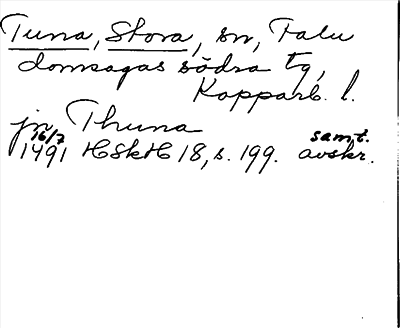 Tuna, Stora, sn, Falu
domsagas södra tg,
Kopparb. l.
jn Thuna
16/7 samt.
1491 HSkH 18, s. 199. avskr.